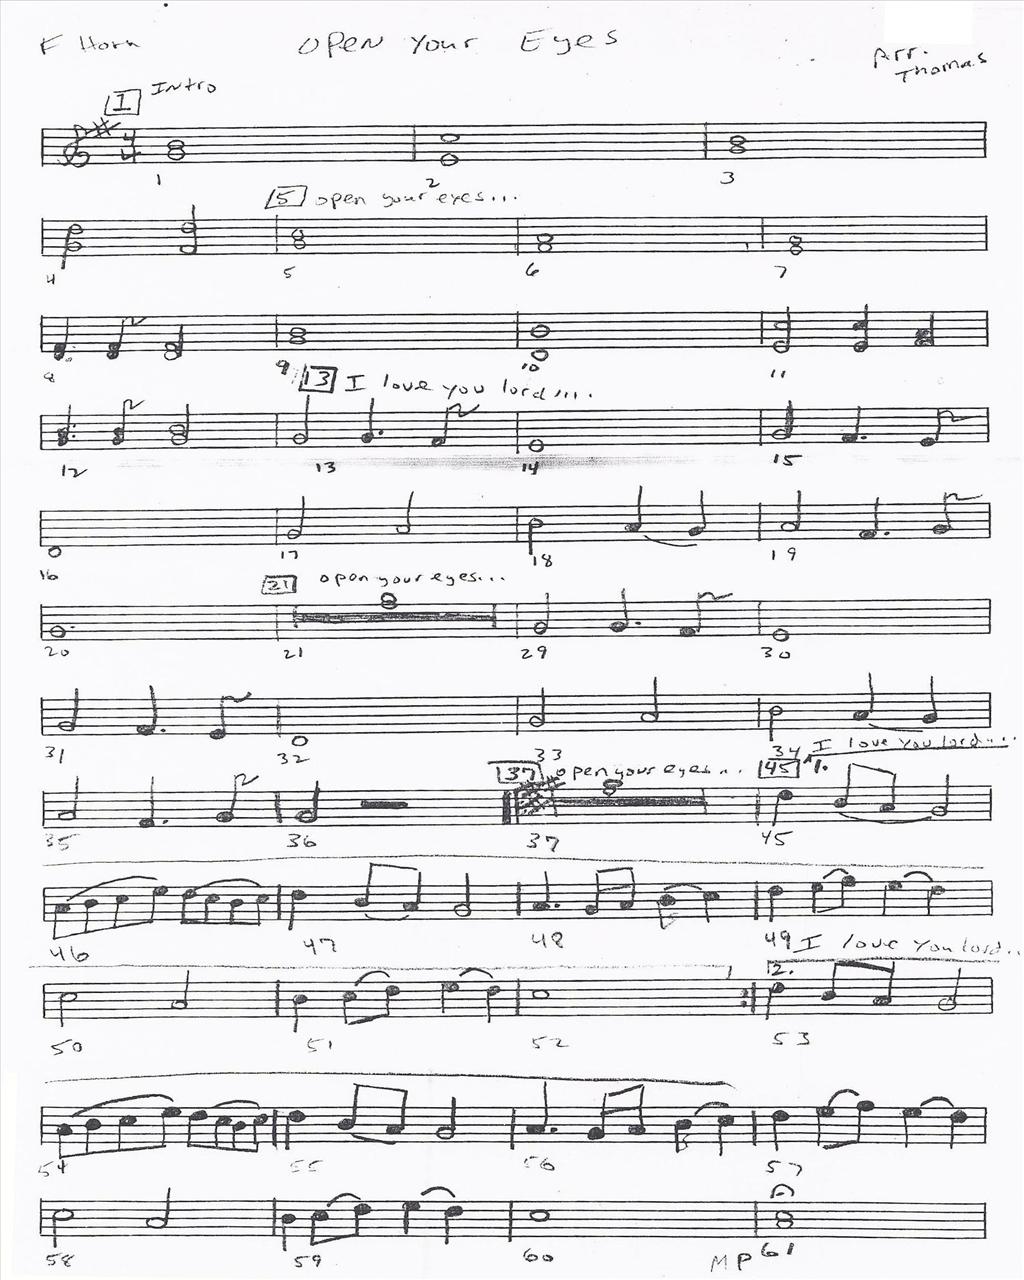 F Horn Open Your Eyes Arr. Thomas
1 Intro
4/4
1 2 3
5 open your eyes...
4 5 6 7
8 9 10 11
13 I love you lord....
12 13 14 15
16 17 18 19
21 open your eyes...
8
20 21 29 30
31 32 33 34
37 open your eyes... 45 1. I love you lord....
8
35 36 37 45
46 47 48 49
I love you lord...
2.
50 51 52 53
54 55 56 57
58 59 60 MP 61